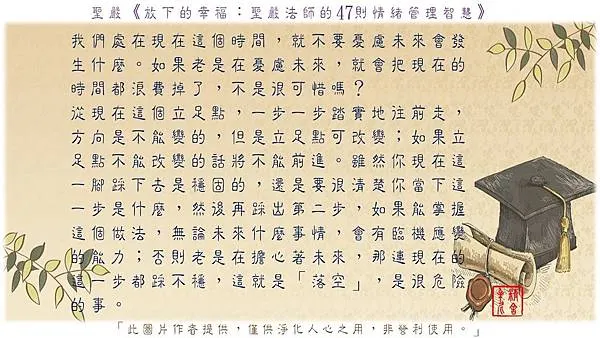 聖嚴《放下的幸福：聖嚴法師的47則情緒管理智慧》
我們處在現在這個時間，就不要憂慮未來會發
生什麼。如果老是在憂慮未來，就會把現在的
時間都浪費掉了，不是很可惜嗎？
從現在這個立足點，一步一步踏實地往前走，
方向是不能變的，但是立足點可改變；如果立
足點不能改變的話將不能前進。雖然你現在這
一腳踩下去是穩固的，還是要很清楚你當下這
一步是什麼，然後再踩出第二步，如果能掌握
這個做法，無論未來什麼事情，會有臨機應變
的能力；否則老是在擔心著未來，那連現在的
這一步都踩不穩，這就是「落空」，是很危險
的事。
「此圖片作者提供，僅供淨化人心之用，非營利使用。」